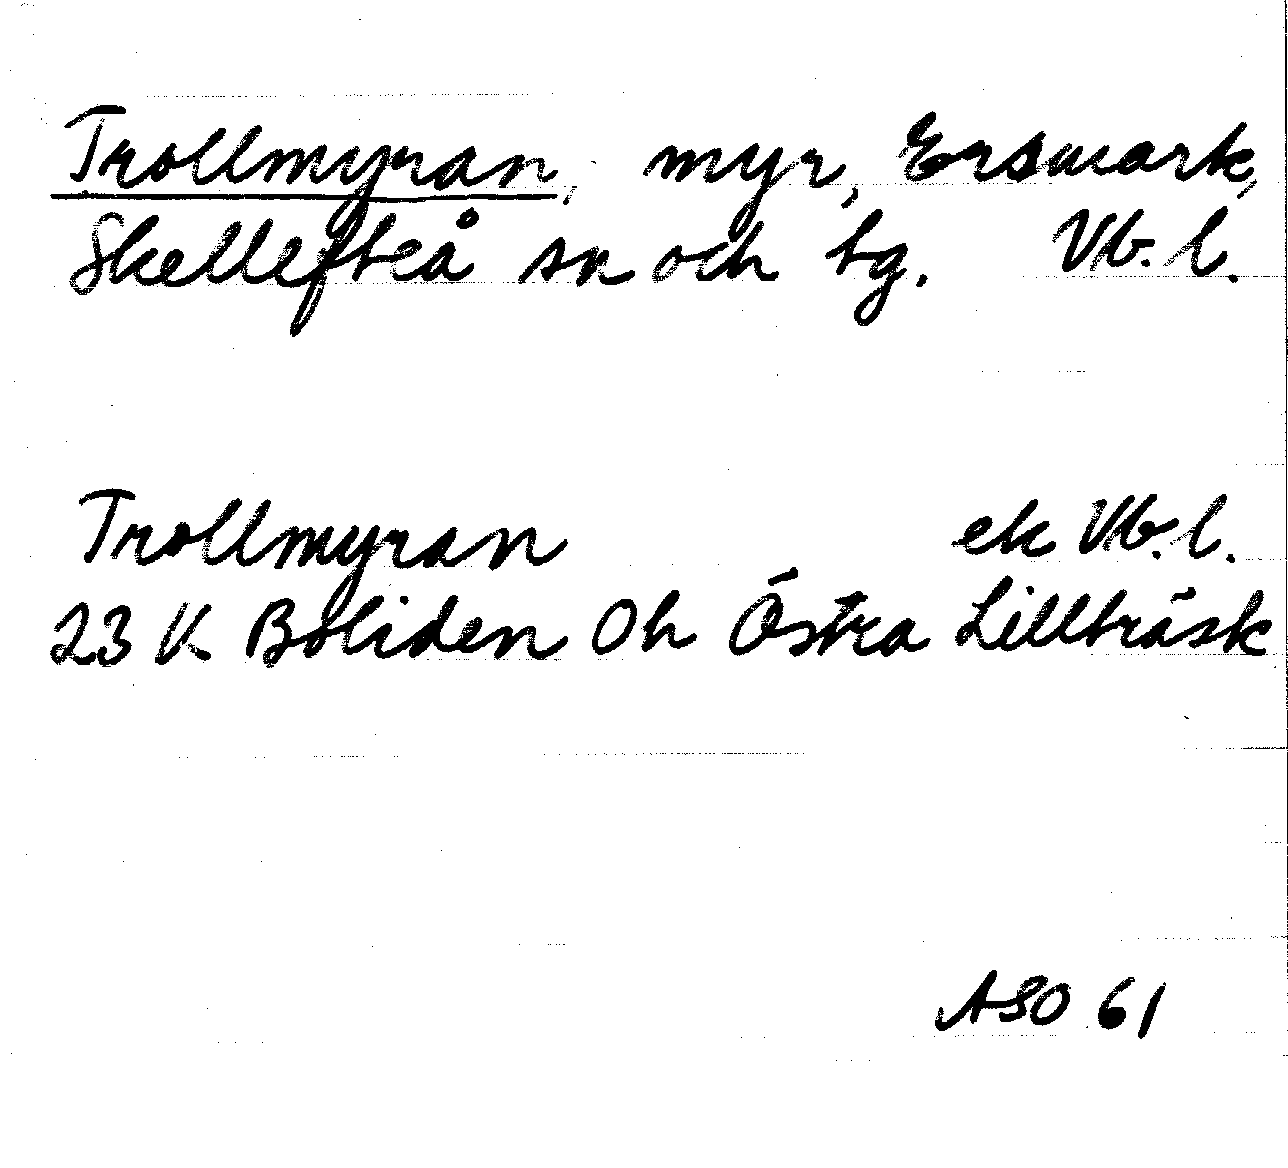 Trollmyran, myr, Ersmark,
Skellefteå sn och tg. Vb. l.
Trollmyran ek Vb. l.
23 K Boliden 0h Östra Lillträsk
ASO 61